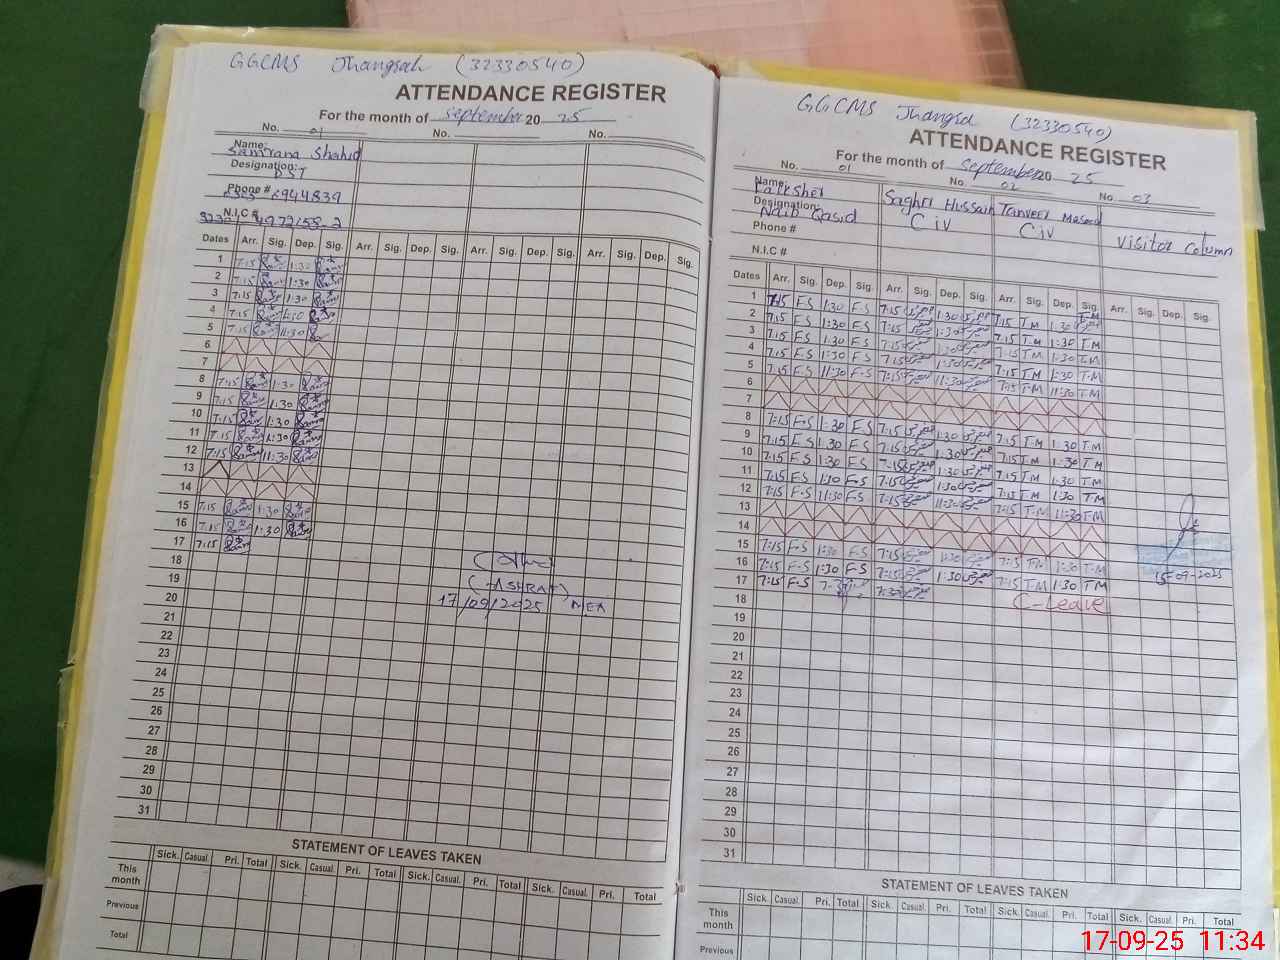 GGCMS Jhangsah (32330540)
ATTENDANCE REGISTER
For the month of september 20 25
No. 01 No. No.
Name: Samrana Shahid
Designation: PST
Phone #
N.I.C #
Dates Arr. Sig. Dep. Sig. Arr. Sig. Dep. Sig. Arr. Sig. Dep. Sig. Arr. Sig. Dep. Sig.
1 7:15 1:30
2 7:15 1:30
3 7:15 1:30
4 7:15 1:30
5 7:15 11:30
6
7
8 7:15 1:30
9 7:15 1:30
10 7:15 1:30
11 7:15 1:30
12 7:15 11:30
13
14
15 7:15 1:30
16 7:15 1:30
17 7:15
18
19 (ASHRAF)
20 17/09/2025 MEA
21
22
23
24
25
26
27
28
29
30
31
STATEMENT OF LEAVES TAKEN
Sick. Casual. Pri. Total Sick. Casual. Pri. Total Sick. Casual. Pri. Total Sick. Casual. Pri. Total
This month
Previous
Total
GGCMS Jhangsa (32330540)
ATTENDANCE REGISTER
For the month of september 20 25
No. 01 No. 02 No. 03
Name: Falksher Saghri Hussain Tanveer Masood
Designation: Naib Qasid Civ Civ Visitor Column
Phone #
N.I.C #
Dates Arr. Sig. Dep. Sig. Arr. Sig. Dep. Sig. Arr. Sig. Dep. Sig. Arr. Sig. Dep. Sig.
1 7:15 F.S 1:30 F.S 7:15 1:30 7:15 T.M 1:30 T.M
2 7:15 F.S 1:30 F.S 7:15 1:30 7:15 T.M 1:30 T.M
3 7:15 F.S 1:30 F.S 7:15 1:30 7:15 T.M 1:30 T.M
4 7:15 F.S 1:30 F.S 7:15 1:30 7:15 T.M 1:30 T.M
5 7:15 F.S 11:30 F.S 7:15 11:30 7:15 T.M 11:30 T.M
6
7
8 7:15 F.S 1:30 F.S 7:15 1:30 7:15 T.M 1:30 T.M
9 7:15 F.S 1:30 F.S 7:15 1:30 7:15 T.M 1:30 T.M
10 7:15 F.S 1:30 F.S 7:15 1:30 7:15 T.M 1:30 T.M
11 7:15 F.S 1:30 F.S 7:15 1:30 7:15 T.M 1:30 T.M
12 7:15 F.S 11:30 F.S 7:15 11:30 7:15 T.M 11:30 T.M
13
14
15 7:15 F.S 1:30 F.S 7:15 1:30 7:15 T.M 1:30 T.M
16 7:15 F.S 1:30 F.S 7:15 1:30 7:15 T.M 1:30 T.M 15-09-2025
17 7:15 F.S 7:30 C-Leave
18
19
20
21
22
23
24
25
26
27
28
29
30
31
STATEMENT OF LEAVES TAKEN
Sick. Casual. Pri. Total Sick. Casual. Pri. Total Sick. Casual. Pri. Total Sick. Casual. Pri. Total
This month
Previous
17-09-25 11:34